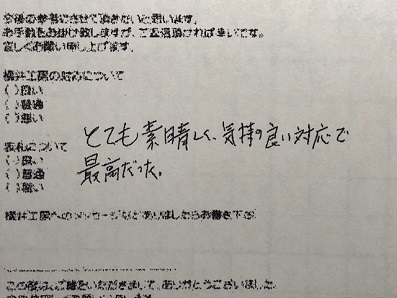 今後の参考にさせて頂きたいと思います。
お手数をお掛け致しますが、ご返信頂ければ幸いです。
宜しくお願い申し上げます。
横井工房の対応について
( )良い
( )普通
( )悪い
とても素晴しく、気持の良い対応で
最高だった。
表札について
( )良い
( )普通
( )悪い
横井工房へのメッセージなどありましたらお書き下さい
この度は、ご購入いただきまして、ありがとうございました。